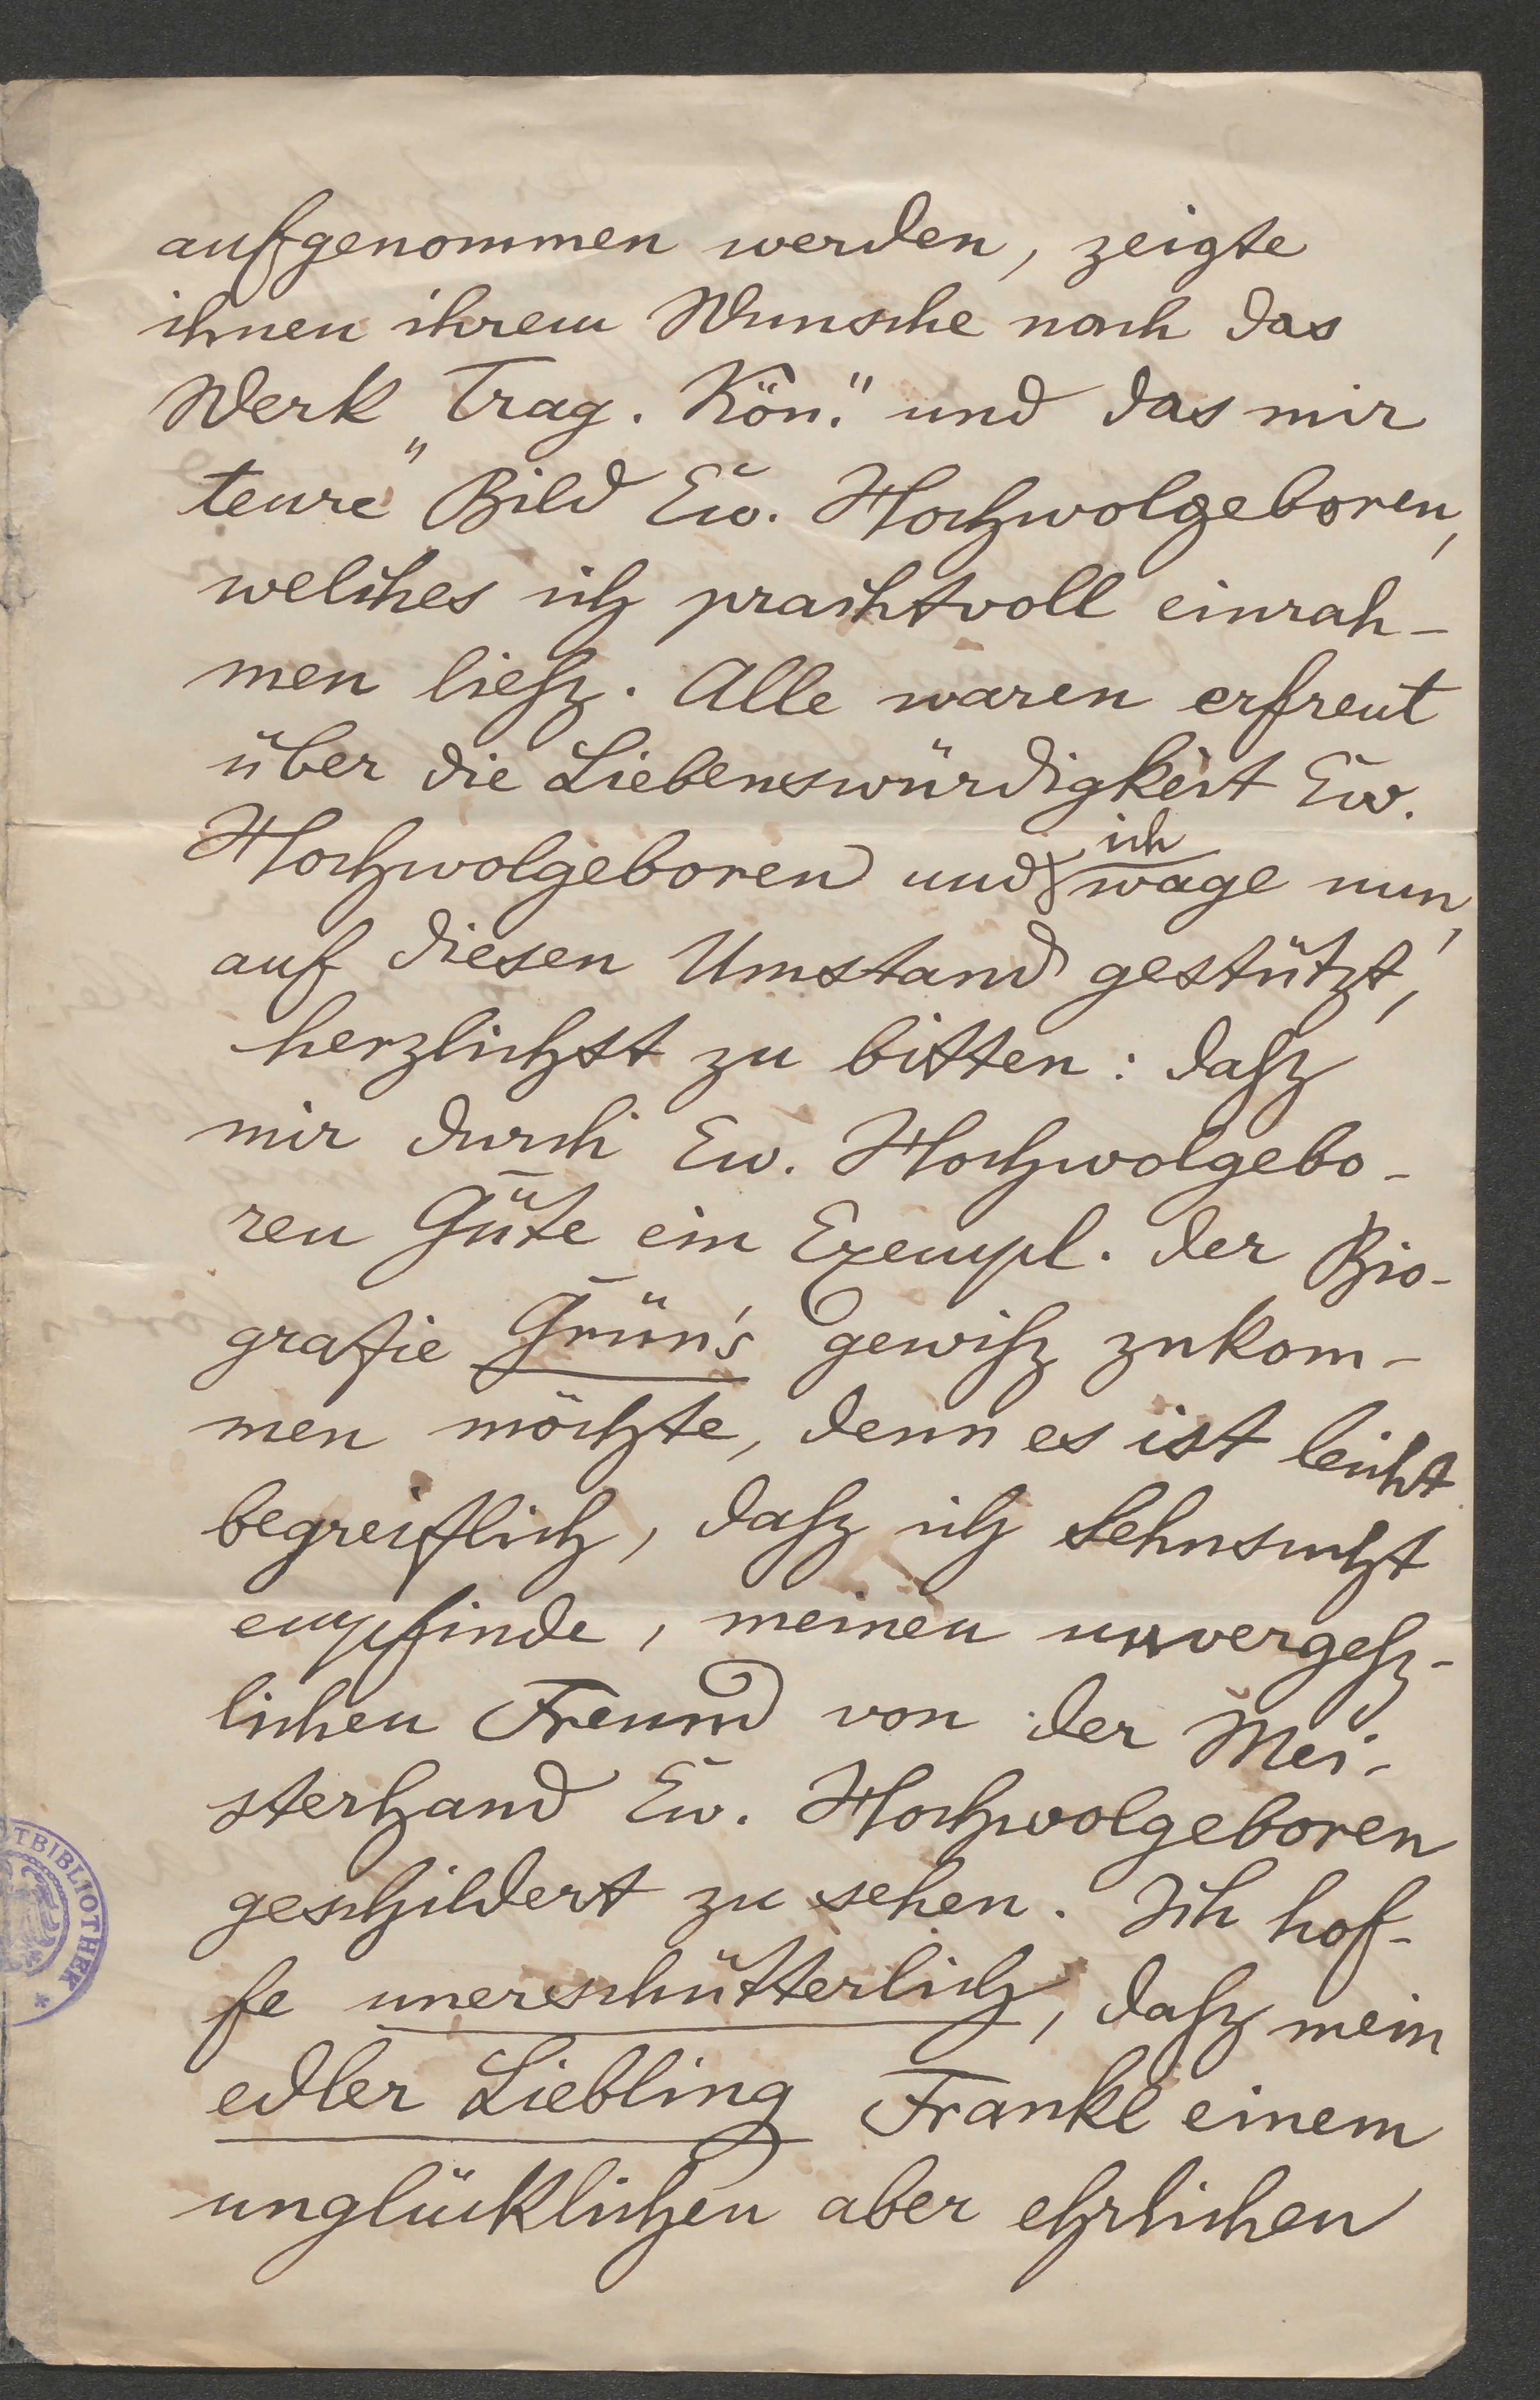 aufgenommen werden, zeigte
ihnen ihrem Wunsche nach das
Werk „Trag. Kön." und das mir
teure Bild Ew. Hochwolgeboren,
welches ich prachtvoll einrah-
men ließ. Alle waren erfreut
über die Liebenswürdigkeit Ew.
Hochwolgeboren und ich wage nun,
auf diesen Umstand gestützt,
herzlichst zu bitten: daß
mir durch Ew. Hochwolgebo-
ren Güte ein Exempl. der Bio-
grafie Grün's gewiß zukom-
men möchte, denn es ist leicht
begreiflich, daß ich Sehnsucht
empfinde, meinen unvergeß-
lichen Freund von der Mei-
sterhand Ew. Hochwolgeboren
geschildert zu sehen. Ich hof-
fe unerschütterlich, daß mein
edler Liebling Frankl einem
unglücklichen aber ehrlichen
TBIBLIOTHEK *